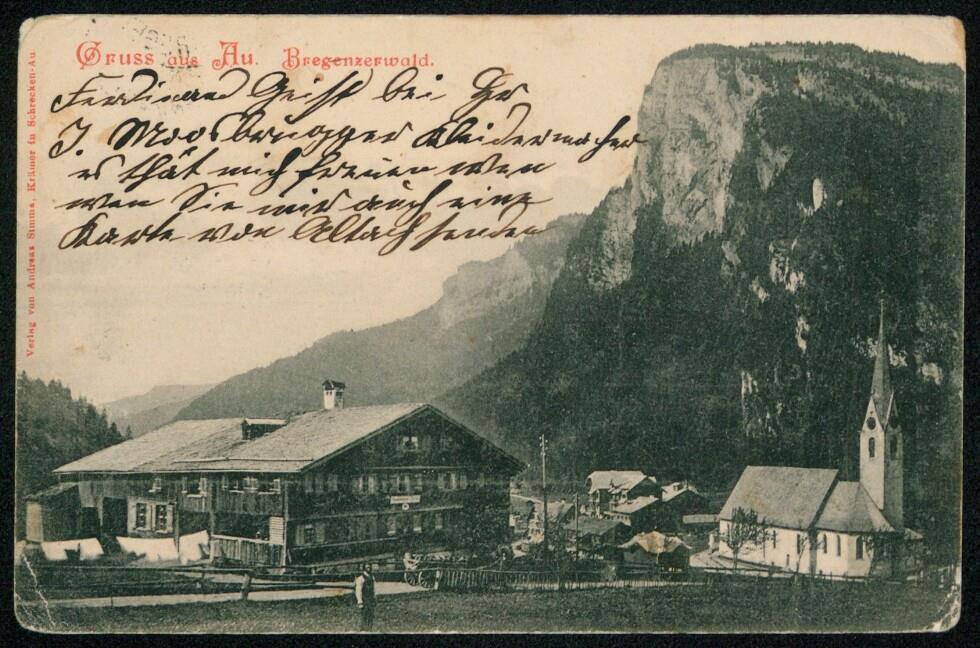 Gruss aus Au. Bregenzerwald.
Ferdinand Geist bei Hr
J. Moosbrugger Kleidermacher
es thät mich freuen wen
wen Sie mir auch eine
Karte von Altach senden
Verlag von Andreas Simma, Krämer in Schrecken-Au